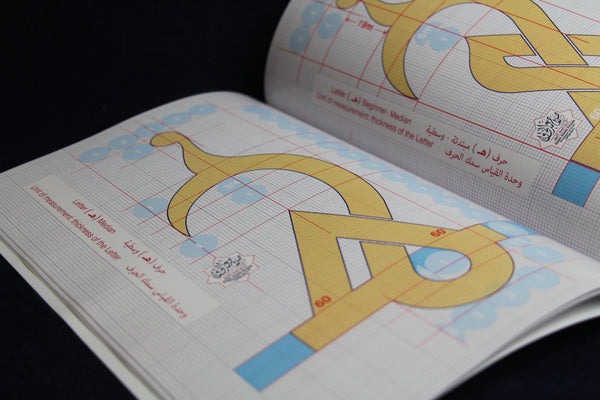 19m
Letter (هـ) Beginner- Median
Unit of measurement: thickness of the Letter
حرف (هـ) مبتدئة - وسطية
وحدة القياس سمك الحرف
60
60
Letter (هـ) Median
Unit of measurement: thickness of the Letter
حرف (هـ) وسطية
وحدة القياس سمك الحرف